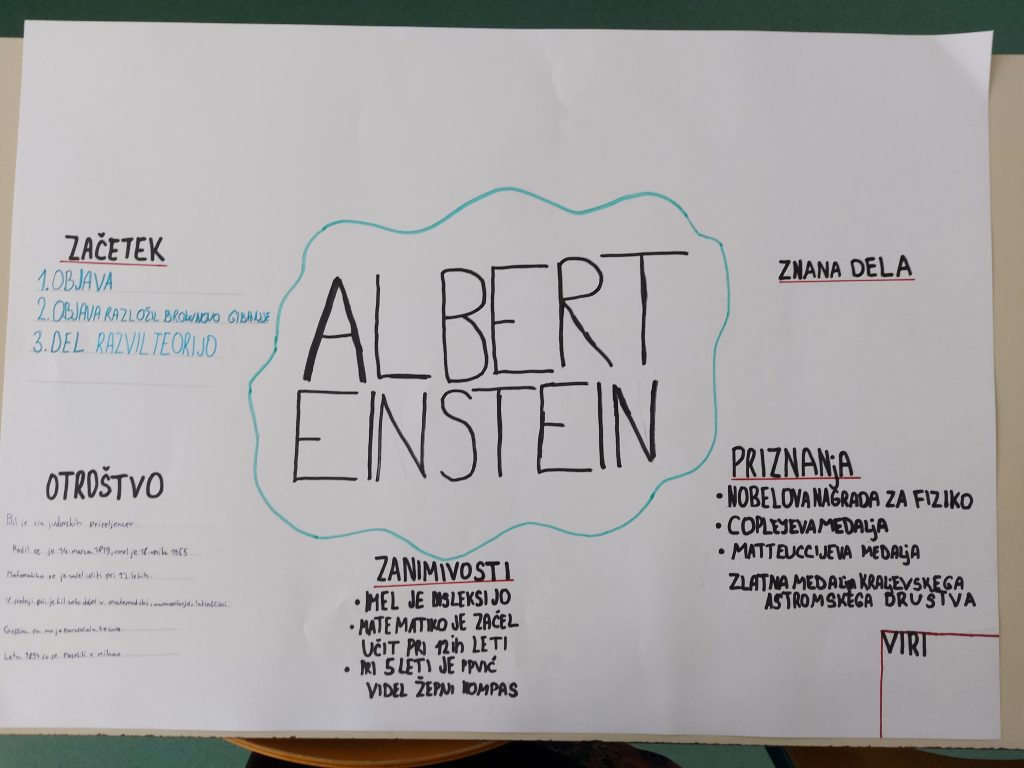 ALBERT
EINSTEIN
ZAČETEK
1. OBJAVA
2. OBJAVA RAZLOŽIL BROWNOVO GIBANJE
3. DEL RAZVIL TEORIJO
OTROŠTVO
Bil je sin judovskih priseljencev
Rodil se je 14. marca 1879, umrl je 18. aprila 1955
Matematiko se je začel učiti pri 12 letih
V srednji šoli je bil zelo dober v matematiki, naravoslovju, latinščini
pa mu je
Leta 1894 so se preselili v milano
ZANIMIVOSTI
• IMEL JE DISLEKSIJO
• MATEMATIKO JE ZAČEL
UČIT PRI 12ih LETI
• PRI 5 LETI JE PRVIČ
VIDEL ŽEPNI KOMPAS
ZNANA DELA
PRIZNANjA
• NOBELOVA NAGRADA ZA FIZIKO
• COPLEJEVA MEDALjA
• MATTEUCCIJEVA MEDALjA
ZLATNA MEDALjA KRALJEVSKEGA
ASTROMSKEGA DRUŠTVA
VIRI